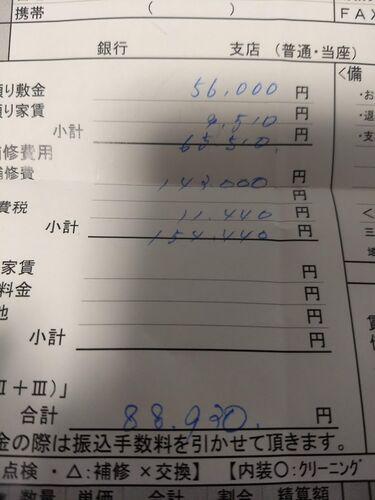 携帯 ( ) FAX
銀行 支店 (普通・当座)
<備
り敷金 56.000 円
り家賃 9.510 円
小計 65.510.
修費用
修費 143.000 円
費税 11.440 円
小計 154.440 円
家賃 円
料金 円
他 円
小計 円
Ⅱ+Ⅲ)」
合計 88.930. 円
金の際は振込手数料を引かせて頂きます。
点検・△:補修 ×交換】 【内装〇:クリーニング
数量 単価 合計